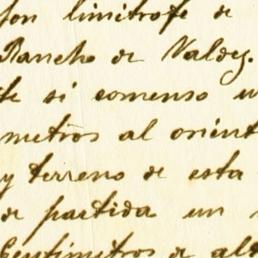 son limitrofe de
Rancho de Valdez.
te si comenso
metros al orient
y terreno de esta
de partida un
Centimetros de al